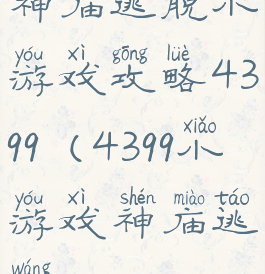 神庙逃脱小
yóu xì gōng lüè
游戏攻略43
xiǎo
99（4399小
yóu xì shén miào táo
游戏神庙逃
wáng